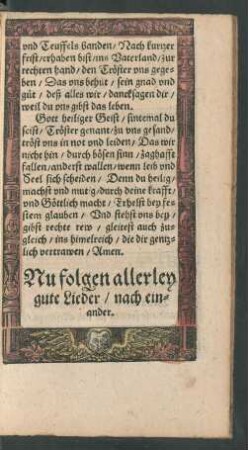 vnd Teuffels banden / Nach kurtzer
frist / erhaben bist / ins Vaterland / zur
rechten hand / den Tröster vns gege-
ben / Das vns behüt / sein gnad vnd
güt / deß alles wir / dancksagen dir /
weil du vns gibst das leben.
Gott heiliger Geist / sintemal du
seist / Tröster genant / zu vns gesand /
tröst vns in not vnd leiden / Das wir
nicht hin / durch bösen sinn / zaghafft
fallen / anderst wallen / wenn leib vnd
Seel sich scheiden / Denn du heilig
machst vnd mutig / durch deine krafft /
vnd Göttlich macht / Erhelst bey fe-
stem glauben / Vnd stehst vns bey /
gibst rechte rew / gleitest auch zu-
gleich / ins himelreich / die dir gentz-
lich vertrawen / Amen.
Nu folgen allerley
gute Lieder / nach ein-
ander.